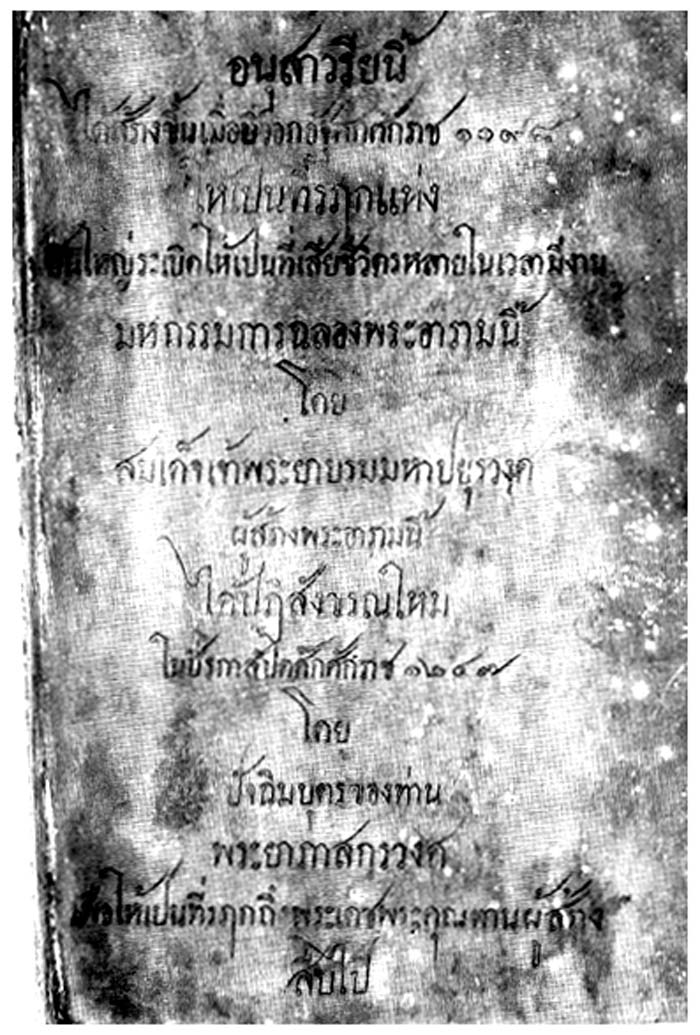 อนุสาวรียนี้
ได้สร้างขึ้นเมื่อปีวอกอัฐศักศักราช ๑๑๙๘
ให้เปนที่รฦกแห่ง
ปืนใหญ่ระเบิดให้เป็นที่เสียชีวิตรหลายในเวลามีงาน
มหกรรมการฉลองพระอารามนี้
โดย
สมเด็จเจ้าพระยาบรมมหาประยุรวงศ
ผู้สร้างพระอารามนี้
ได้ปฏิสังขรณ์ใหม่
ในปีรกาสัปตศักศักราช ๑๒๔๗
โดย
ปัจฉิมบุตรของท่าน
พระยาภาสกรวงศ
ให้เป็นที่รฦกถึงพระเดชพระคุณท่านผู้สร้าง
สืบไป